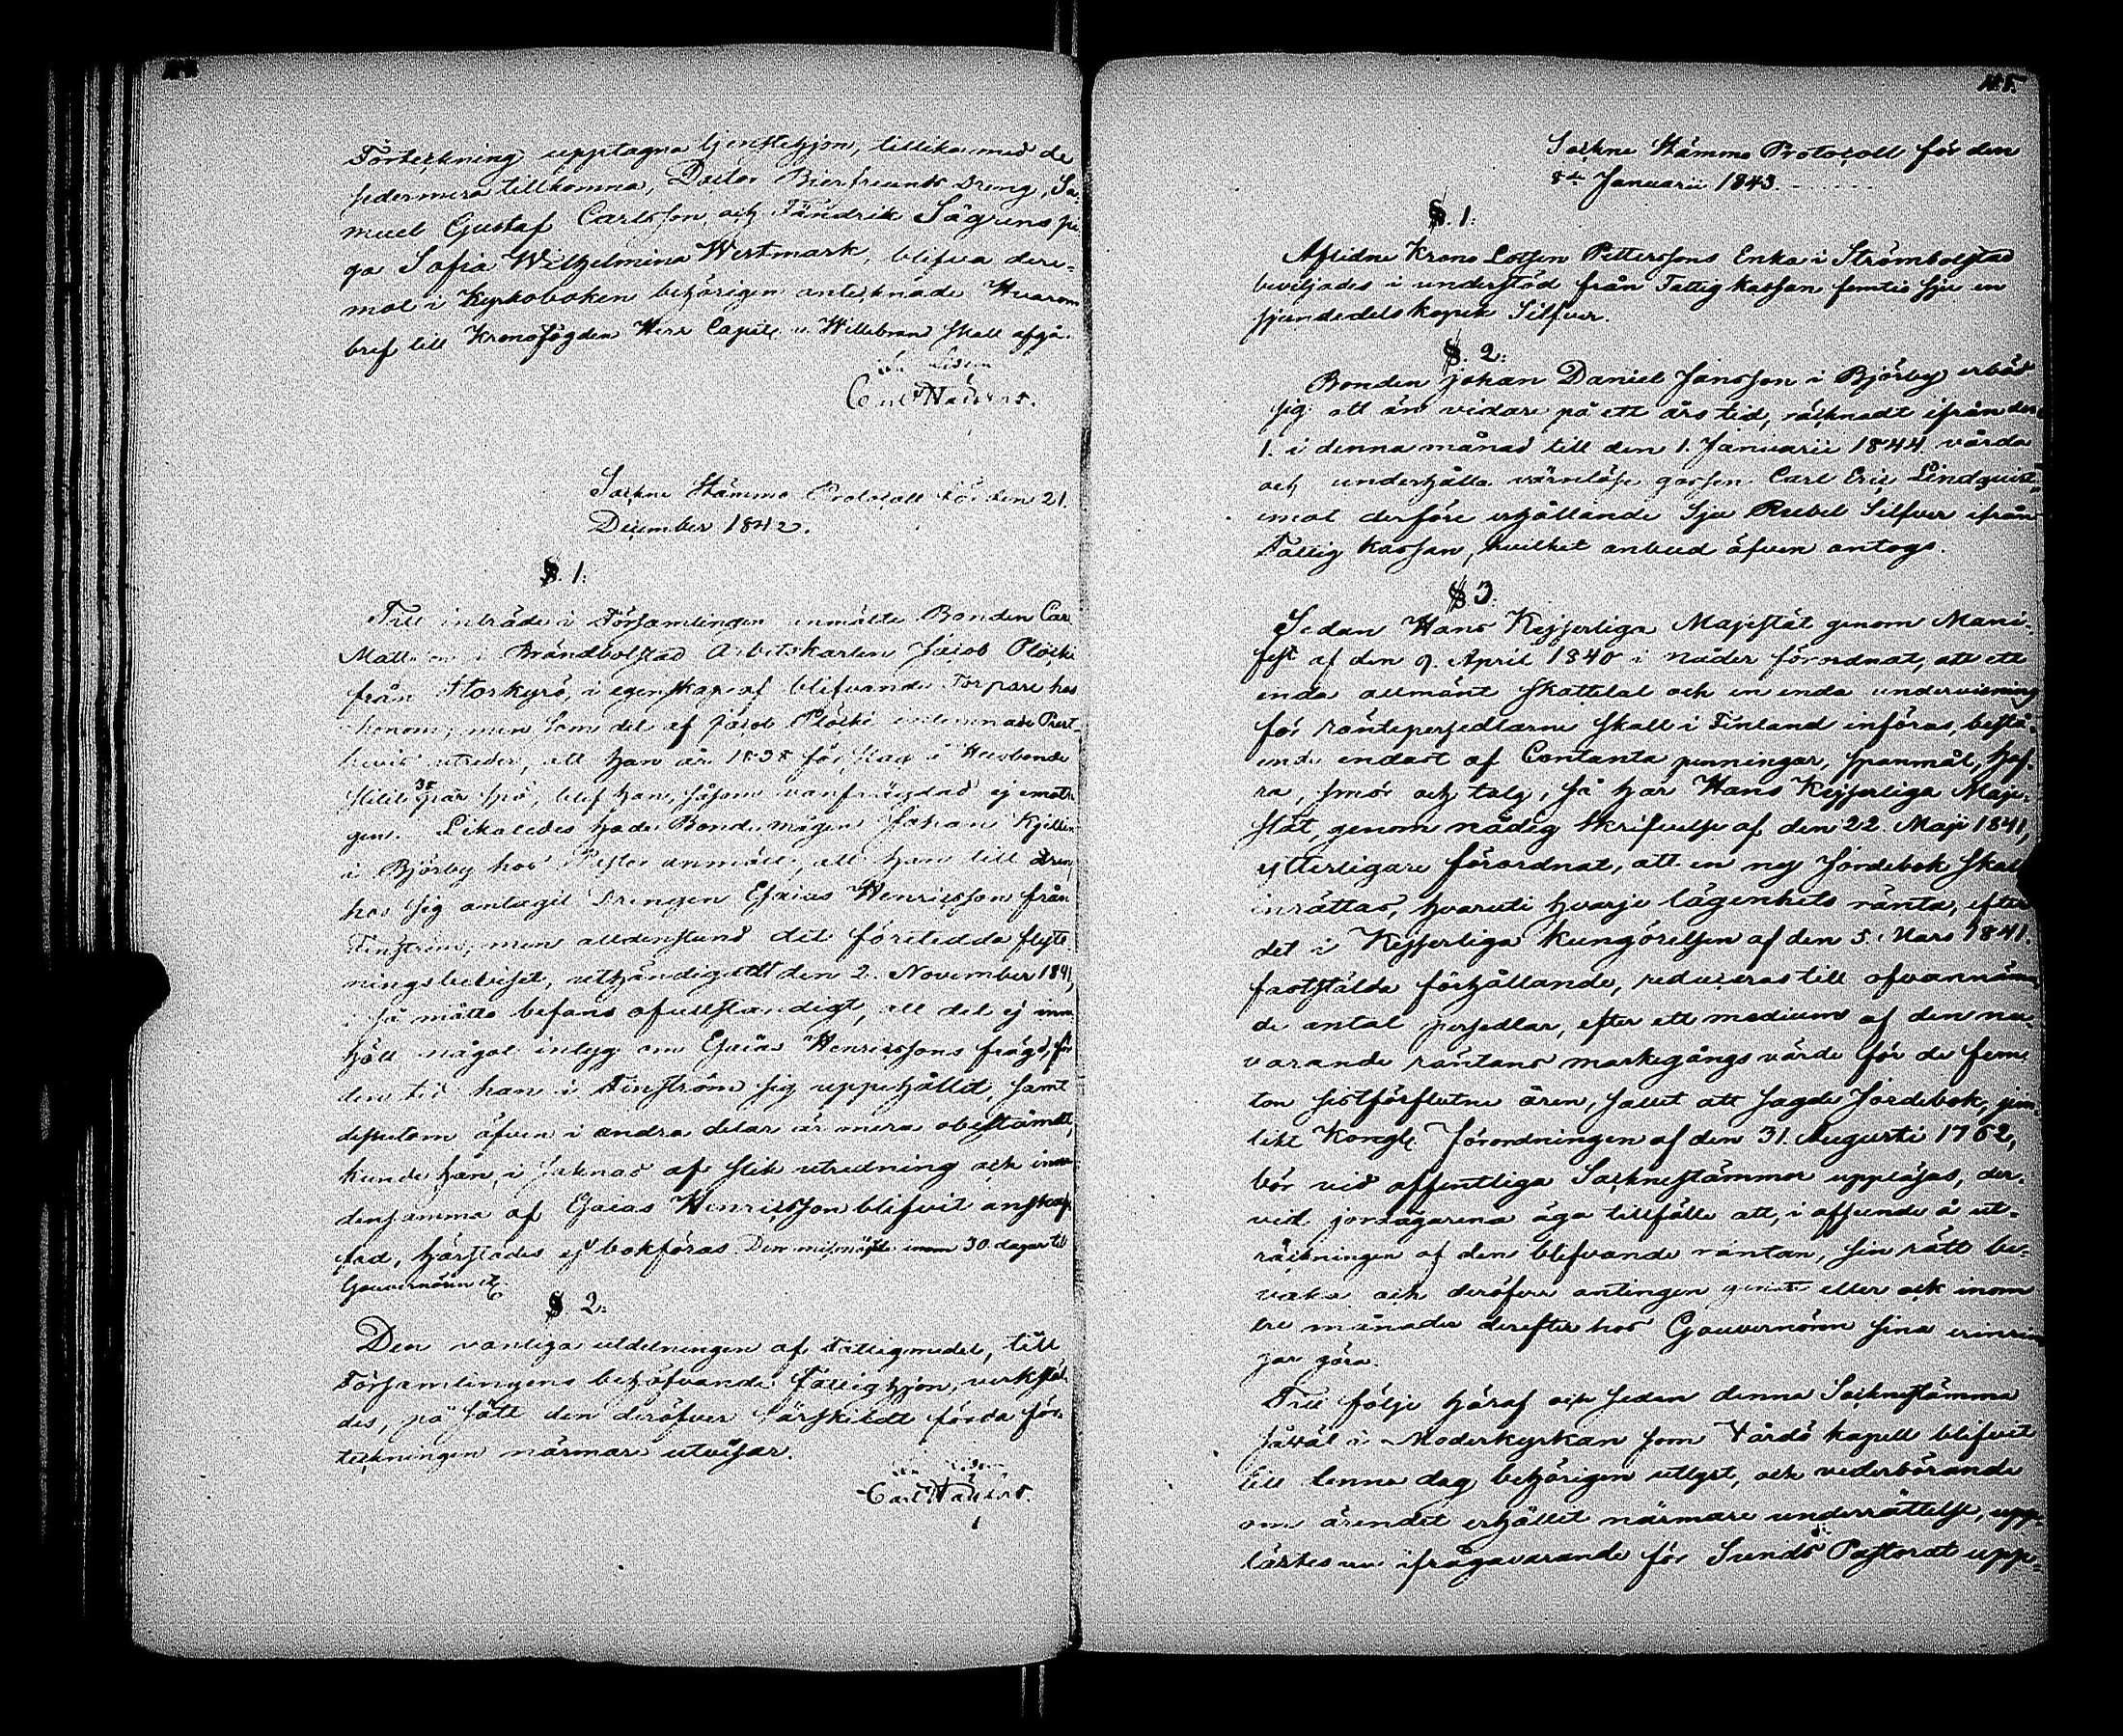 Förteckning upptagna tjenstehjon, tillika med de
sedermera tillkomna, Doctor Bierfreunds dreng, Sa-
muel Gustaf Carlsson, och Fändrik Sågrens pi-
ga Sofia Wilhelmina Westmark, blifva dere-
mot i Kyrkoboken behörigen antecknade Hvarom
bref till Kronofogden Herr Capit. v. Willebran skall afgå.
Carl
Sockne Stämmo Protocoll för den 21.
December 1842.
§. 1:
Till inträde i Församlingen anmälte Bonden Carl
Mattsson i Brändbolstad Arbetskarlen Jacob Plöski
från Storkyro, i egenskap af blifvande Torpare hos
honom, men som det af Jacob Plöski inlemnade Prest-
bevis utreder, att han år 1838 för
38 par spö, blef han, såsom vanfräjdad ej emotta-
gen. Likaledes hade Bonde mågen Johan
i Björby hos Pastor anmält, att han till dreng
hos sig antagit Drengen Esaias Henricsson från
Finström, men alldenstund det företedda flytt-
ningsbetyget, uthändigadt den 2. November 1841,
i så måtto befans ofullständigt, att det ej inne-
höll något intyg om Esaias Henricssons frägd, för
den tid han i Finström sig uppehållit, samt
dessutom äfven i andra delar är mera obestämdt,
kunde han, i saknad af slik utredning och innan
densamma af Esaias Henricsson blifvit anskaf-
fad, härstädes ej bokföras. Den missnöjde inom 30. dagar till
Gouvernören etc.
§ 2:
Den vanliga utdelningen af Fattigmedel, till
Församlingens behöfvande fattighjon, verkstäl-
des, på sätt den deröfver särskildt förda för-
teckningen närmare utvisar.
Carl
115.
Sockne Stämmo Protocoll för den
8de Januarii 1843.
§. 1:
Aflidne Krono Lotsen Petterssons Enka i Strömbolstad
beviljades i understöd från Fattig kassan femtio sju en
sjundedels kopek Silfver.
§. 2:
Bonden Johan Daniel Jansson i Björby erböd
sig att än vidare på ett års tid, räcknadt ifrån den
1. i denna månad till den 1. Januarii 1844. vårda
och underhålla värnlöse gossen Carl Eric Lindqvist
emot derföre erhållande Sju Rubel Silfver ifrån
Fattig kassan, hvilket anbud äfven antogs.
§ 3:
Sedan Hans Kejserliga Majestät genom Mani-
fest af den 9. April 1840 i nåder förordnat, att ett
enda allmänt skattetal och en enda undervisning
för räntepersedlarne skall i Finland införas, bestå-
ende endast af Contanta penningar, spanmål, haf-
ra, smör och talg, så har Hans Kejserliga Maje-
stät, genom nådig Skrifvelse af den 22. Maji 1841,
ytterligare förordnat, att en ny Jordebok skall
inrättas, hvaruti hvarje lägenhets ränta, efter
det i Kejserliga Kungörelsen af den 5. Mars 1841.
fastställda förhållande, reduceras till ofvannämn-
de antal persedlar, efter ett medium af den nu-
varande räntans markegångs värde för de fem-
ton sistförflutne åren, samt att sagde Jordebok, jem-
likt Kongl. Förordningen af den 31. Augusti 1762,
bör vid offentliga Socknestämmor uppläsas, der-
vid jordägarena äga tillfälle att, i afseende å ut-
räckningen af den blifvande räntan, sin rätt be-
vaka och deröfver antingen genast eller och inom
tre månader derefter hos Gouvernören sina erinrin-
gar göra.
Till följe häraf och sedan denna Socknestämma
såväl i Moderkyrkan som Vårdö kapell blifvit
till denna dag behörigen utlyst, och vederbörande
om ärendet erhållit närmare underrättelse, upp-
lästes nu ifrågavarande för Sunds Pastorat upp-